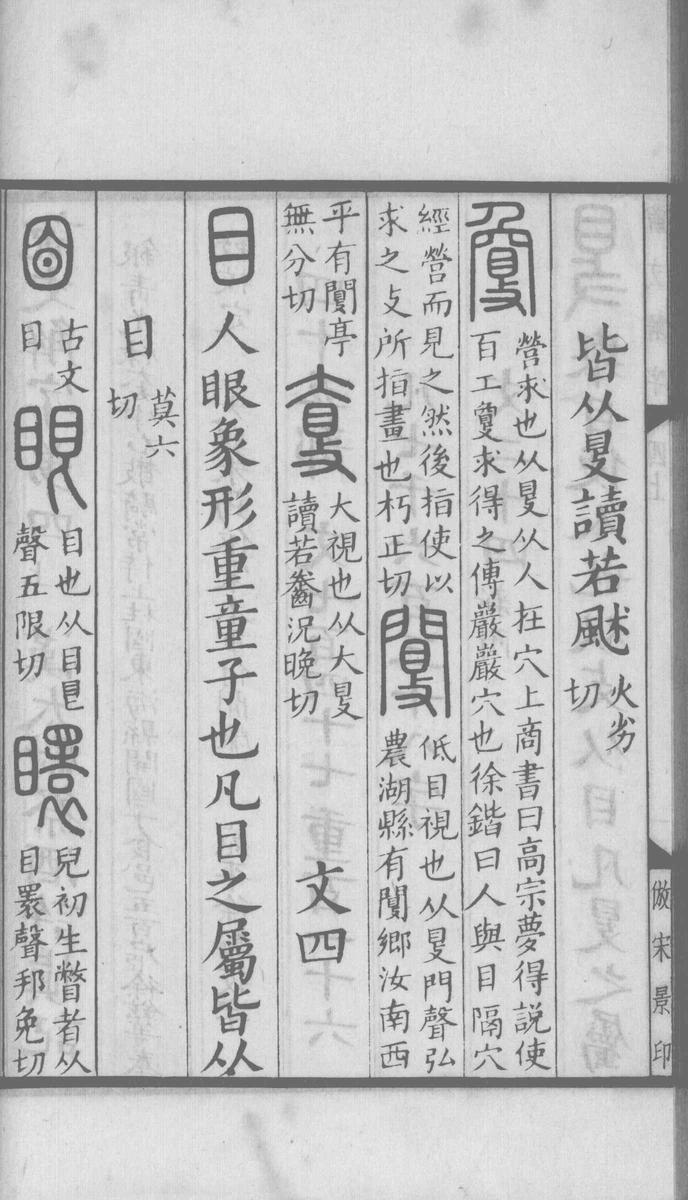 皆从𥄎讀若䬍火劣
切
敻
營求也从𥄎从人在穴上商書曰高宗夢得說使
百工敻求得之傅巖巖穴也徐鍇曰人與目隔穴
經營而見之然後指使以
求之攴所指畫也朽正切
閺
低目視也从𥄎門聲弘
農湖縣有閺鄉汝南西
平有閺亭
無分切
𡕀
大視也从大𥄎
讀若齤況晚切
文四
目
人眼象形重童子也凡目之屬皆从
目莫六
切
囧
古文
目
眼
目也从目皀
聲五限切
矎
兒初生瞥者从
目瞏聲邦免切
倣宋景印